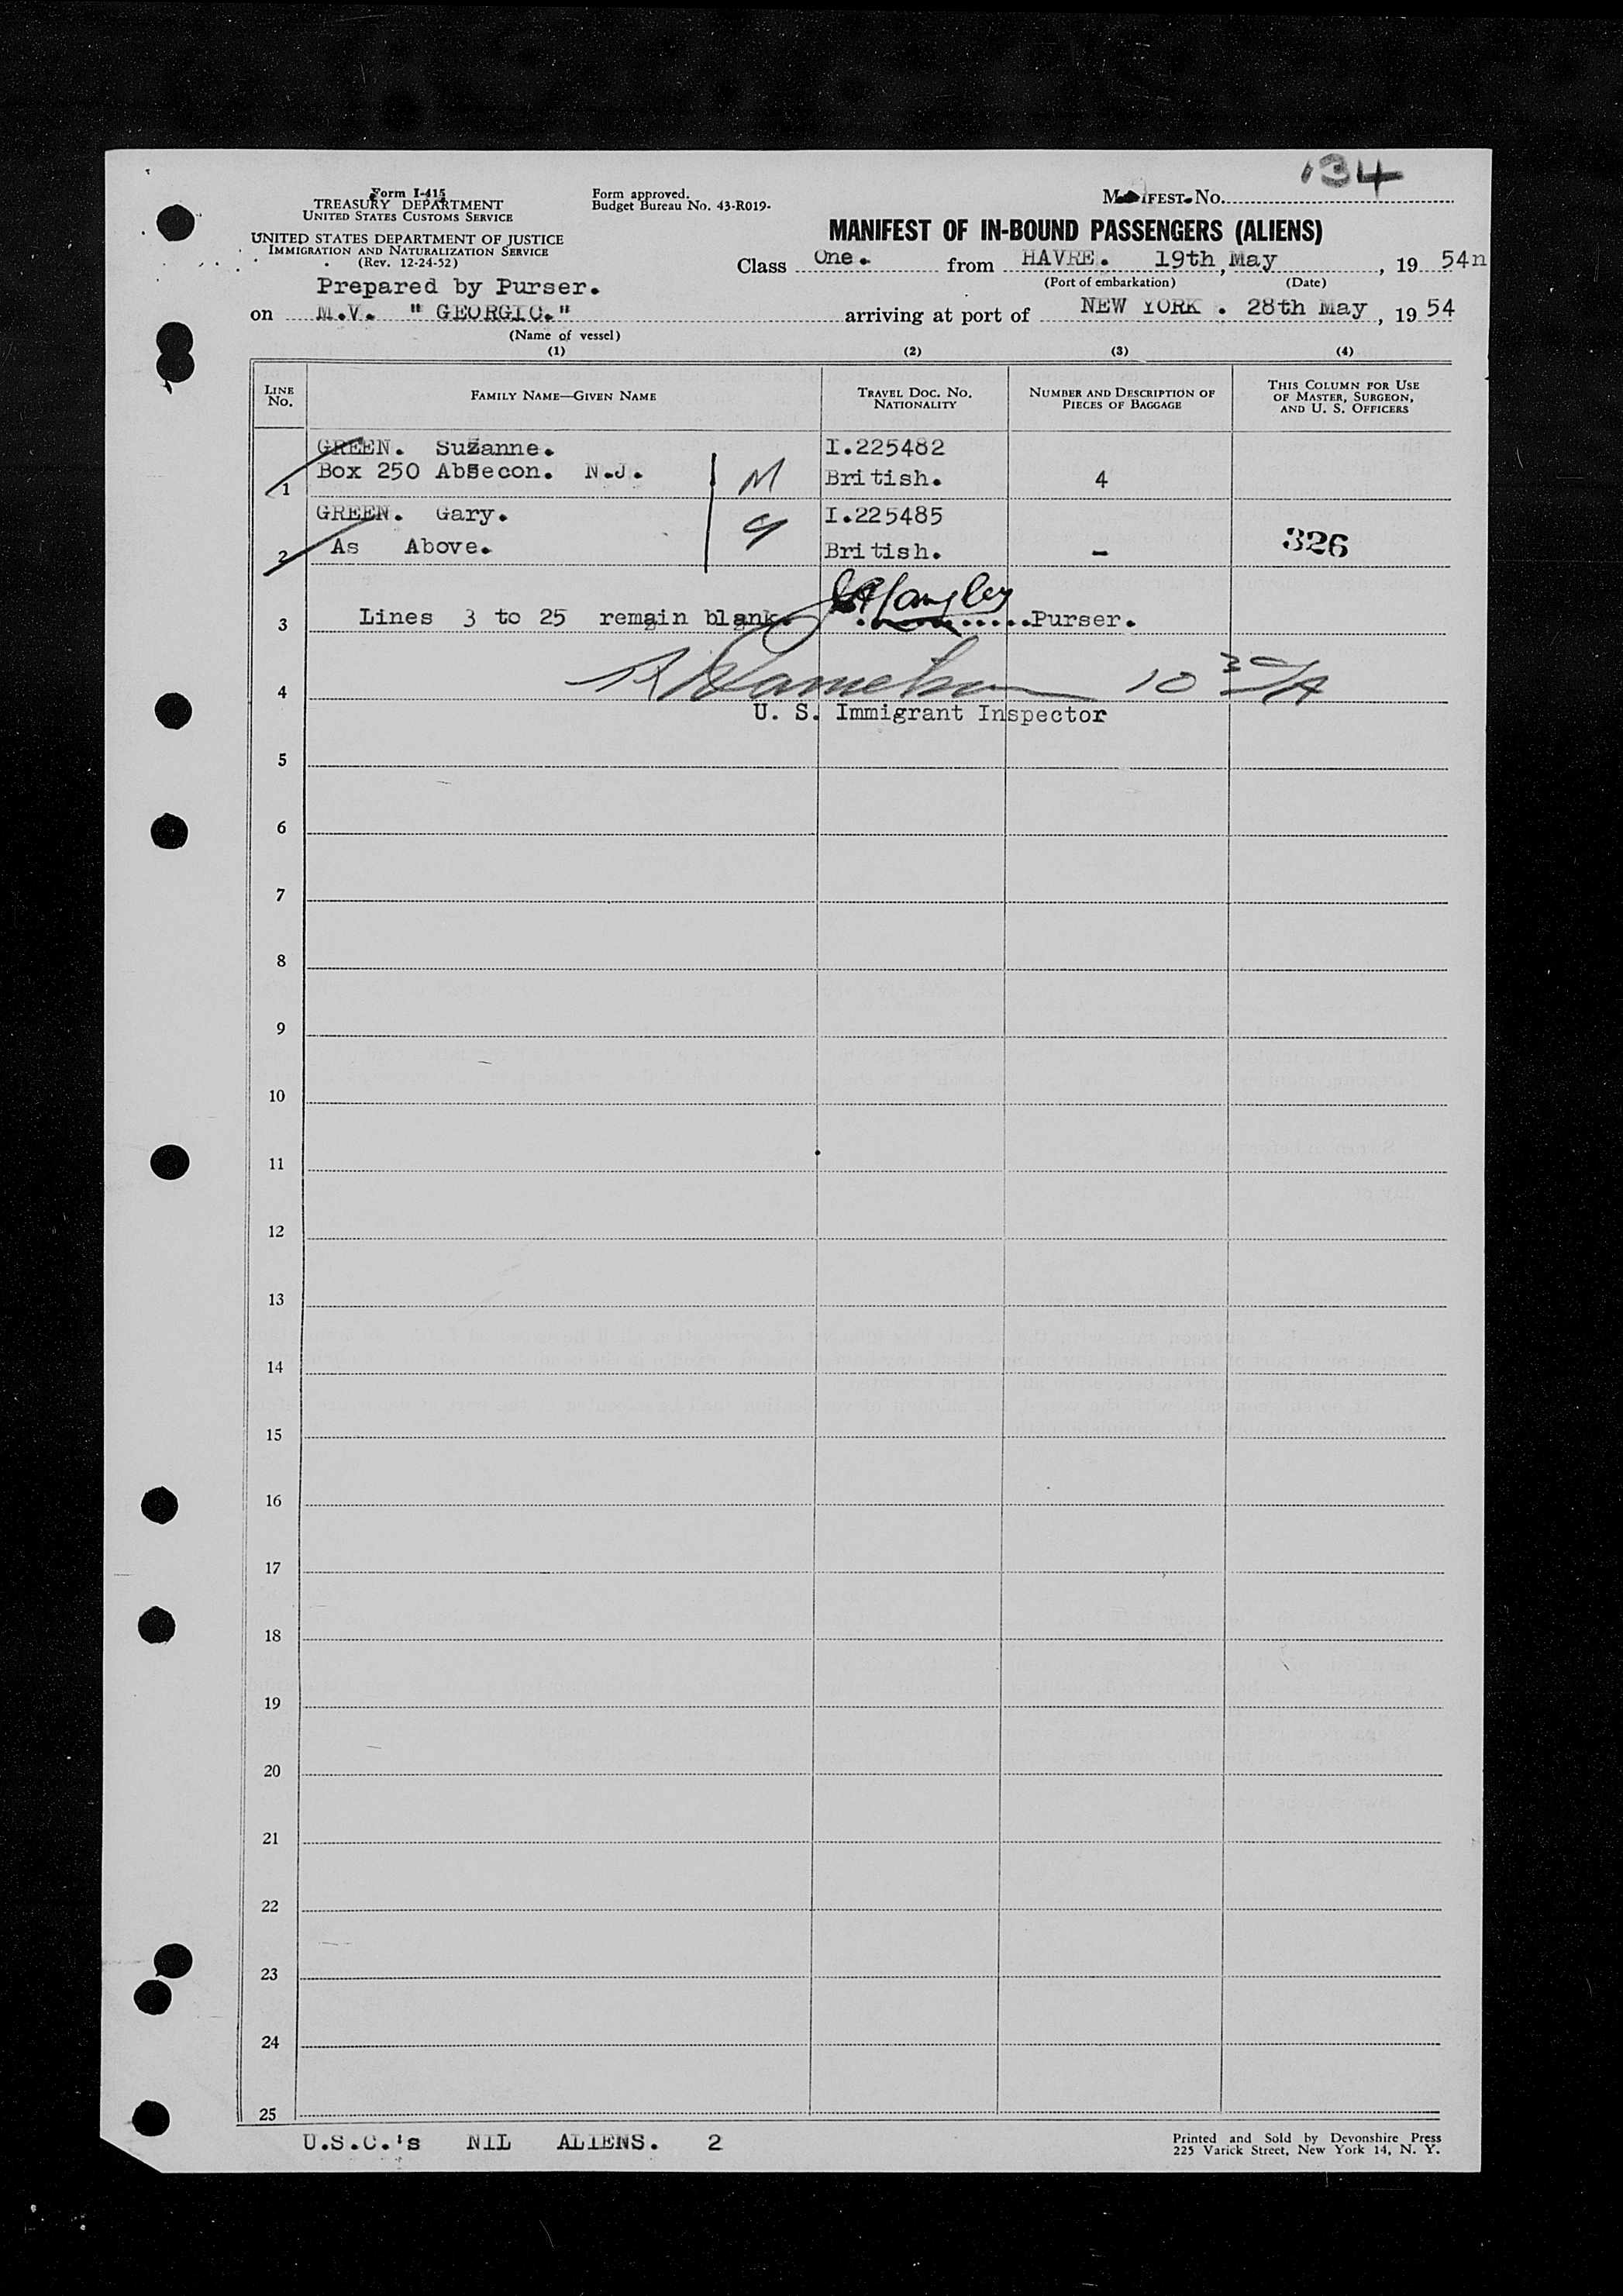 134
Form I-415
TREASURY DEPARTMENT
UNITED STATES CUSTOMS SERVICE
UNITED STATES DEPARTMENT OF JUSTICE
IMMIGRATION AND NATURALIZATION SERVICE
(Rev. 12-24-52)
Form approved.
Budget Bureau No. 43-R019-
MANIFEST No.
MANIFEST OF IN-BOUND PASSENGERS (ALIENS)
Class One. from HAVRE. 19th, May, 19 54
(Port of embarkation) (Date)
Prepared by Purser.
on M.V. " GEORGIC." arriving at port of NEW YORK . 28th May, 19 54
(Name of vessel)
(1) (2) (3) (4)
LINE No. FAMILY NAME—GIVEN NAME TRAVEL DOC. NO. NATIONALITY NUMBER AND DESCRIPTION OF PIECES OF BAGGAGE THIS COLUMN FOR USE OF MASTER, SURGEON, AND U. S. OFFICERS
GREEN. Suzanne. I.225482
1 Box 250 Absecon. N.J. M British. 4
GREEN. Gary. I.225485
2 As Above. British. - 326
3 Lines 3 to 25 remain blank. Purser.
4
U. S. Immigrant Inspector
5
6
7
8
9
10
11
12
13
14
15
16
17
18
19
20
21
22
23
24
25
U.S.C.'s NIL ALIENS. 2
Printed and Sold by Devonshire Press
225 Varick Street, New York 14, N. Y.